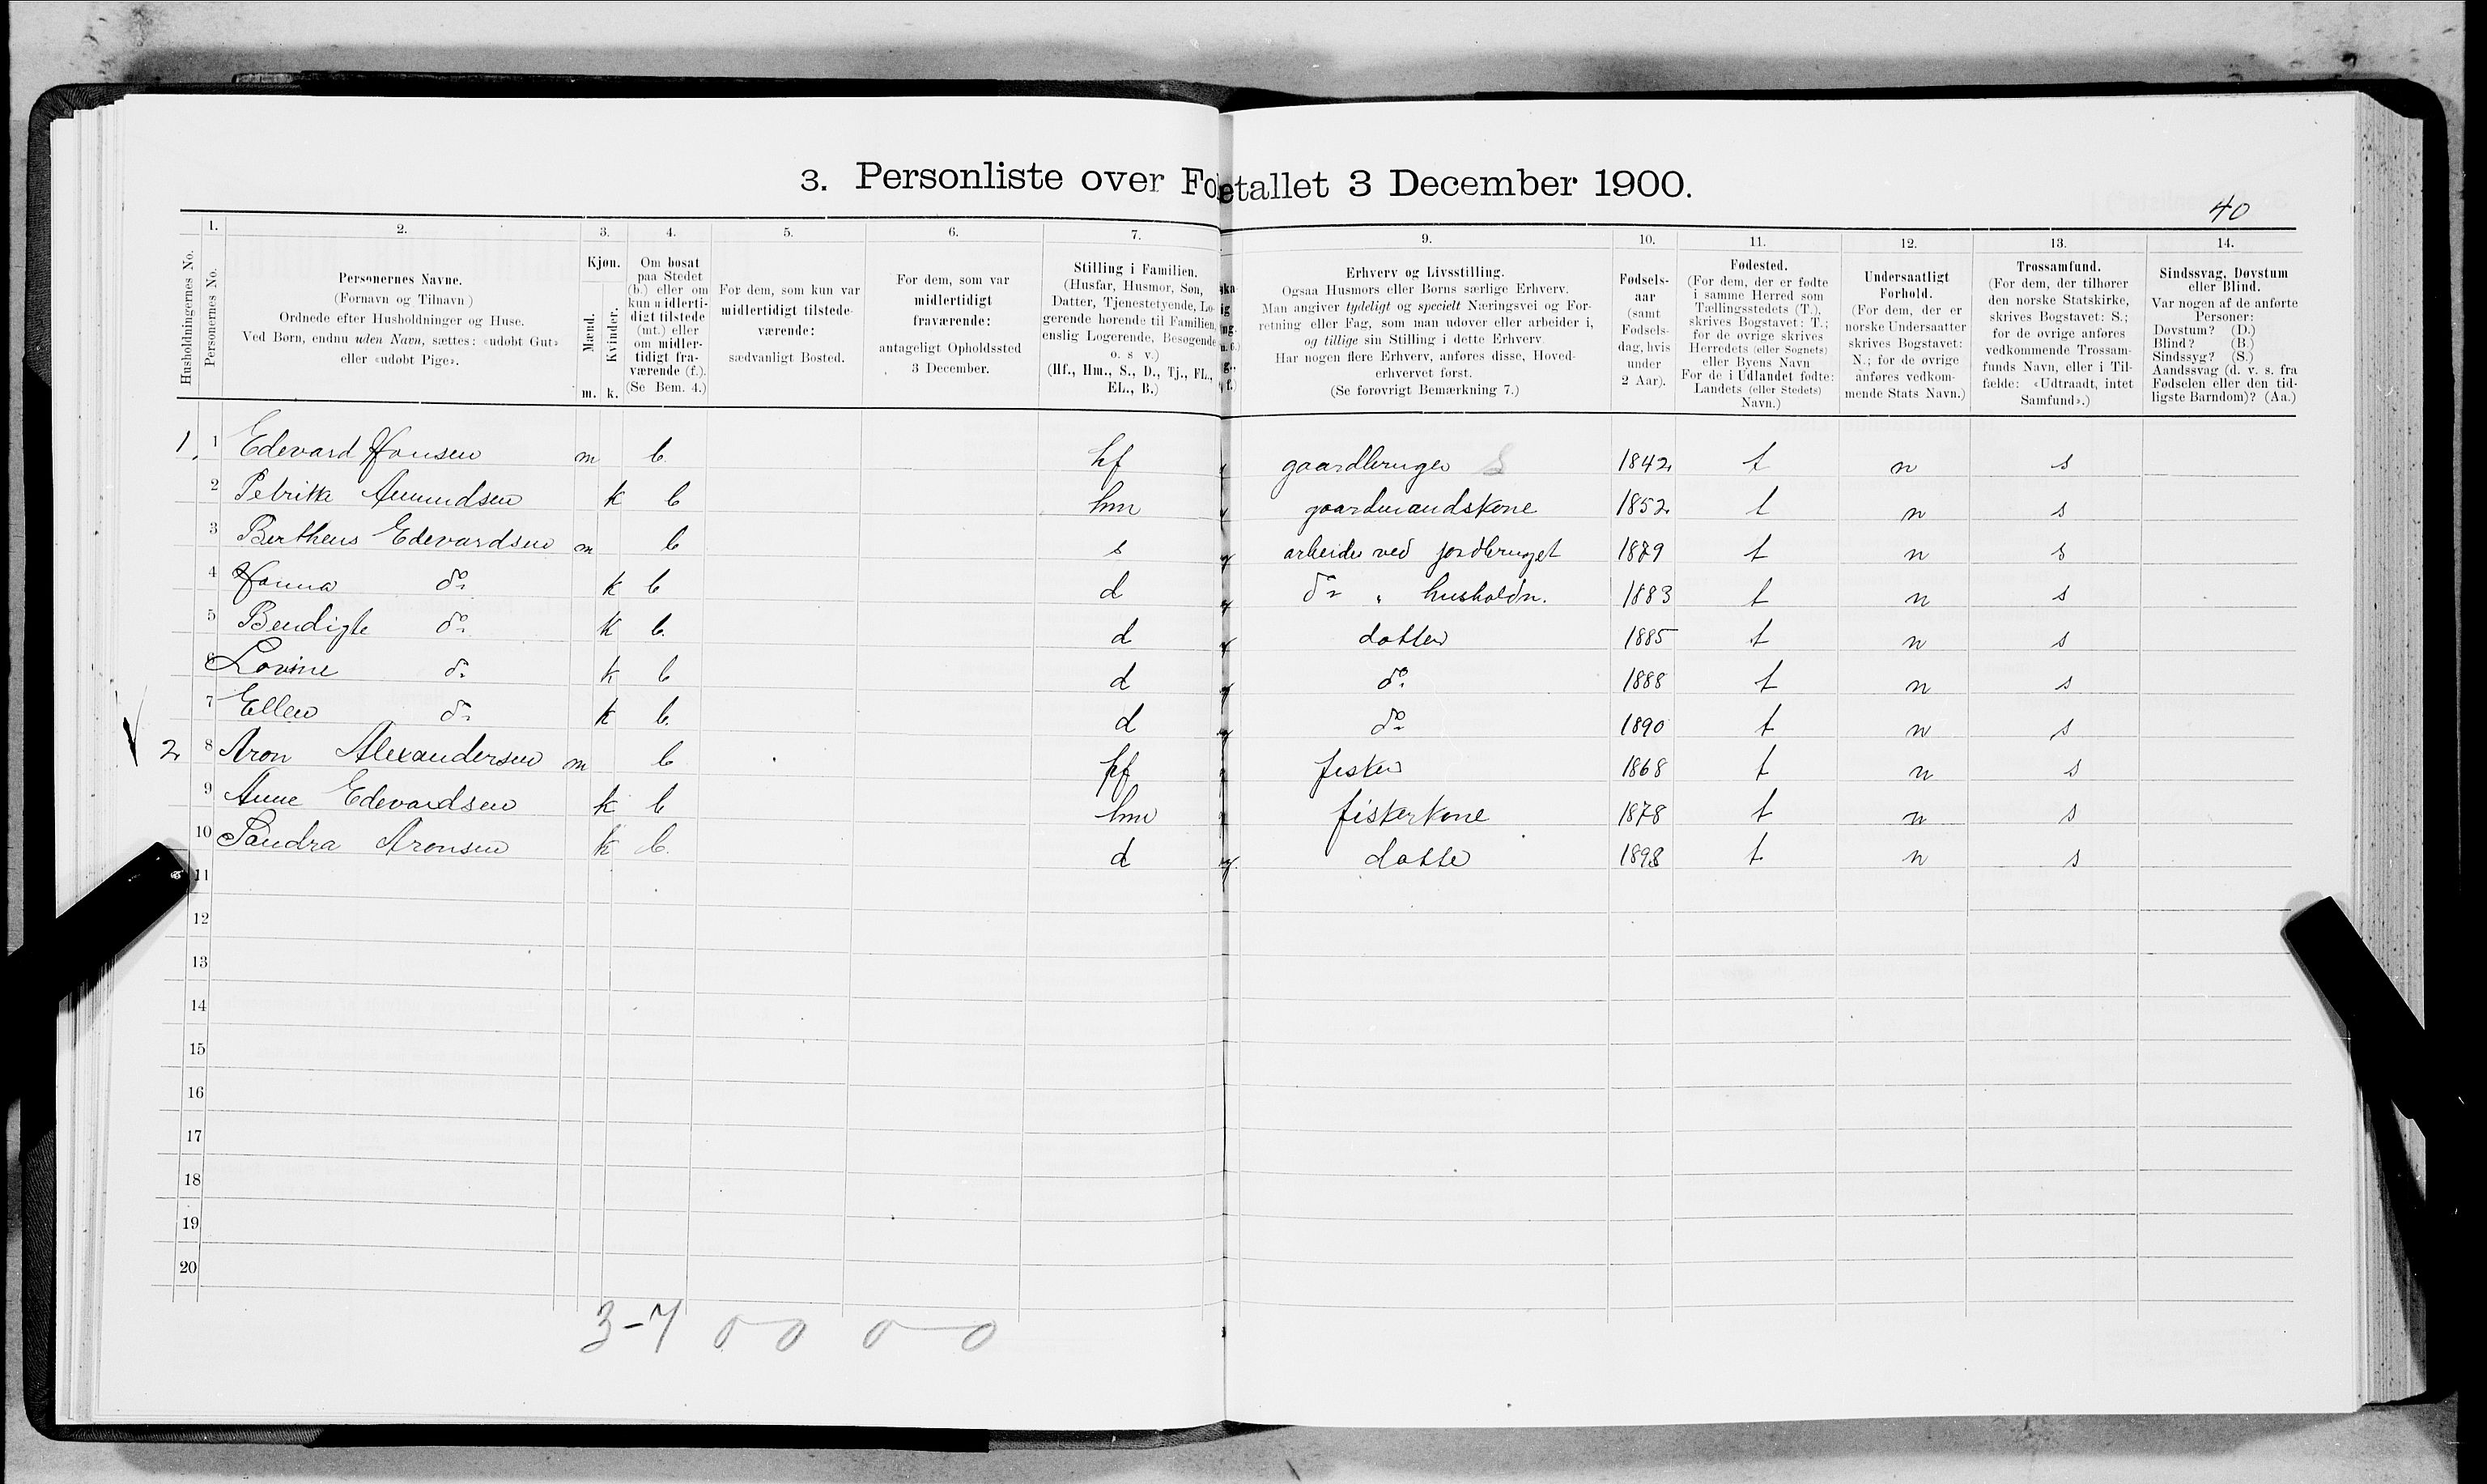 3. Personliste over Folketallet 3 December 1900.
40
1. 2. 3. 4. 5. 6. 7. 9. 10. 11. 12. 13. 14.
Husholdningernes No.
Personernes No.
Personernes Navne.
(Fornavn og Tilnavn)
Ordnede efter Husholdninger og Huse.
Ved Børn, endnu uden Navn, sættes: «udøbt Gut»
eller «udøbt Pige».
Kjøn.
Mænd.
Kvinder.
m. k.
Om bosat
paa Stedet
(b.) eller om
kun midlerti-
digt tilstede
(mt.) eller
om midler-
tidigt fra-
værende (f.).
(Se Bem. 4.)
For dem, som kun var
midlertidigt tilstede-
værende:
sædvanligt Bosted.
For dem, som var
midlertidigt
fraværende:
antageligt Opholdssted
3 December.
Stilling i Familien.
(Husfar, Husmor, Søn,
Datter, Tjenestetyende, Lo-
gerende hørende til Familien,
enslig Logerende, Besøgende
o. s. v.)
(Hf., Hm., S., D., Tj., FL.,
EL., B.)
Erhverv og Livsstilling.
Ogsaa Husmors eller Børns særlige Erhverv.
Man angiver tydeligt og specielt Næringsvei og For-
retning eller Fag, som man udøver eller arbeider i,
og tillige sin Stilling i dette Erhverv.
Har nogen flere Erhverv, anføres disse, Hoved-
erhvervet først.
(Se forøvrigt Bemærkning 7.)
Fødsels-
aar
(samt
Fødsels-
dag, hvis
under
2 Aar).
Fødested.
(For dem, der er fødte
i samme Herred som
Tællingsstedets (T.),
skrives Bogstavet: T.;
for de øvrige skrives
Herredets (eller Sognets)
eller Byens Navn
For de i Udlandet fødte:
Landets (eller Stedets)
Navn.)
Undersaatligt
Forhold.
(For dem, der er
norske Undersaatter
skrives Bogstavet:
N.; for de øvrige
anføres vedkom-
mende Stats Navn.)
Trossamfund.
(For dem, der tilhører
den norske Statskirke,
skrives Bogstavet: S.;
for de øvrige anføres
vedkommende Trossam-
funds Navn, eller i Til-
fælde: «Udtraadt, intet
Samfund».)
Sindssvag, Døvstum
eller Blind.
Var nogen af de anførte
Personer:
Døvstum? (D.)
Blind? (B.)
Sindssyg? (S.)
Aandssvag (d. v. s. fra
Fødselen eller den tid-
ligste Barndom)? (Aa.)
1. 1 Edevard Hansen m b. hf gaardbruger S 1842 t n s
2 Petrikka Amundsen k b hm gaardmandskone 1852 t n s
3 Bertheus Edevardsen m b s arbeider ved jordbruget 1879 t n s
4 Hanna do. k b d do " husholdn. 1883 t n s
5 Bendigte do. k b. d datter 1885 t n s
6 Lovine do. k b d do. 1888 t n s
7 Ellen do. k b. d do 1890 t n s
2 8 Aron Alexandersen m b hf fisker 1868 t n s
9 Anne Edevardsen k b hm fiskerkone 1878 t n s
10 Sandra Aronsen k b. d datter 1898 t n s
11
12
13
14
15
16
17
18
19
20
3-7 0 0 0-0